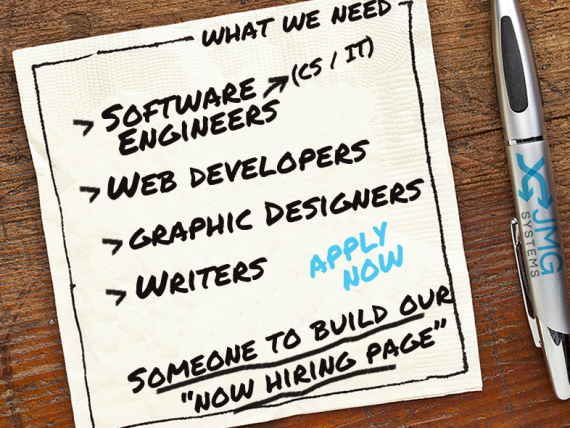 WHAT WE NEED
SOFTWARE (CS / IT)
ENGINEERS
WEB DEVELOPERS
GRAPHIC DESIGNERS
WRITERS
APPLY
NOW
SOMEONE TO BUILD OUR
"NOW HIRING PAGE"
JMG
SYSTEMS